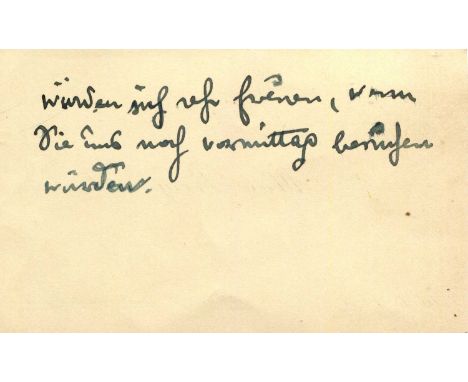 würden sich sehr freuen, wenn
Sie uns noch vormittags besuchen
würden.